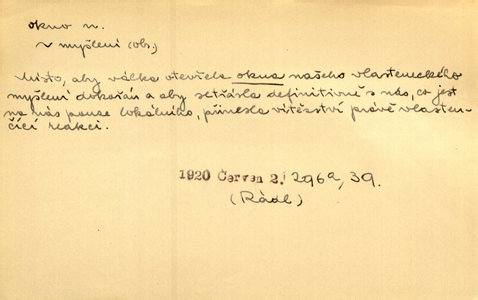 okno n.
v myšlení (obr.)
Místo, aby válka otevřela okna našeho vlasteneckého
myšlení dokořán a aby setřásla definitivně s nás, co jest
na nás pouze lokálního, přinesla vítězství právě vlasten-
čící reakci.
1920 Červen 2. 296a, 39.
(Rádl)